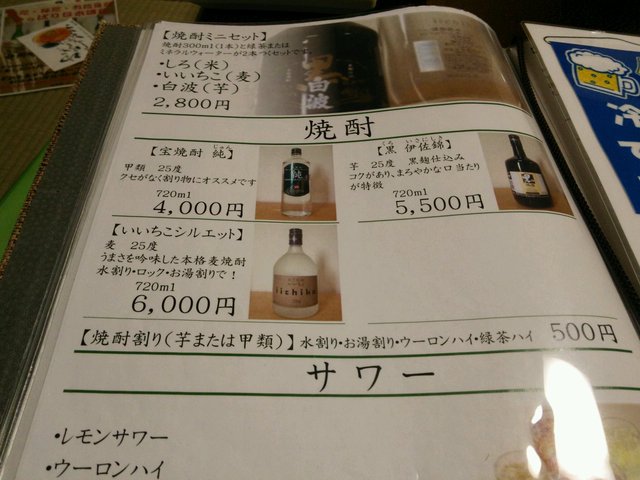 【焼酎ミニセット】
焼酎300ml(1本)と緑茶または
ミネラルウォーターが2本つくセットです。
・しろ(米)
・いいちこ(麦)
・白波(芋)
2,800円
黒白波
焼酎
じゅん
【宝焼酎 純】
甲類 25度
クセがなく割り物にオススメです
720ml
4,000円
純
くろ いさにしき
【黒 伊佐錦】
芋 25度 黒麹仕込み
コクがあり、まろやかな口当たり
が特徴
720ml
5,500円
【いいちこシルエット】
麦 25度
うまさを吟味した本格麦焼酎
水割り・ロック・お湯割りで!
720ml
6,000円
iichiko
【焼酎割り(芋または甲類)】水割り・お湯割り・ウーロンハイ・緑茶ハイ 500円
サワー
・レモンサワー
・ウーロンハイ